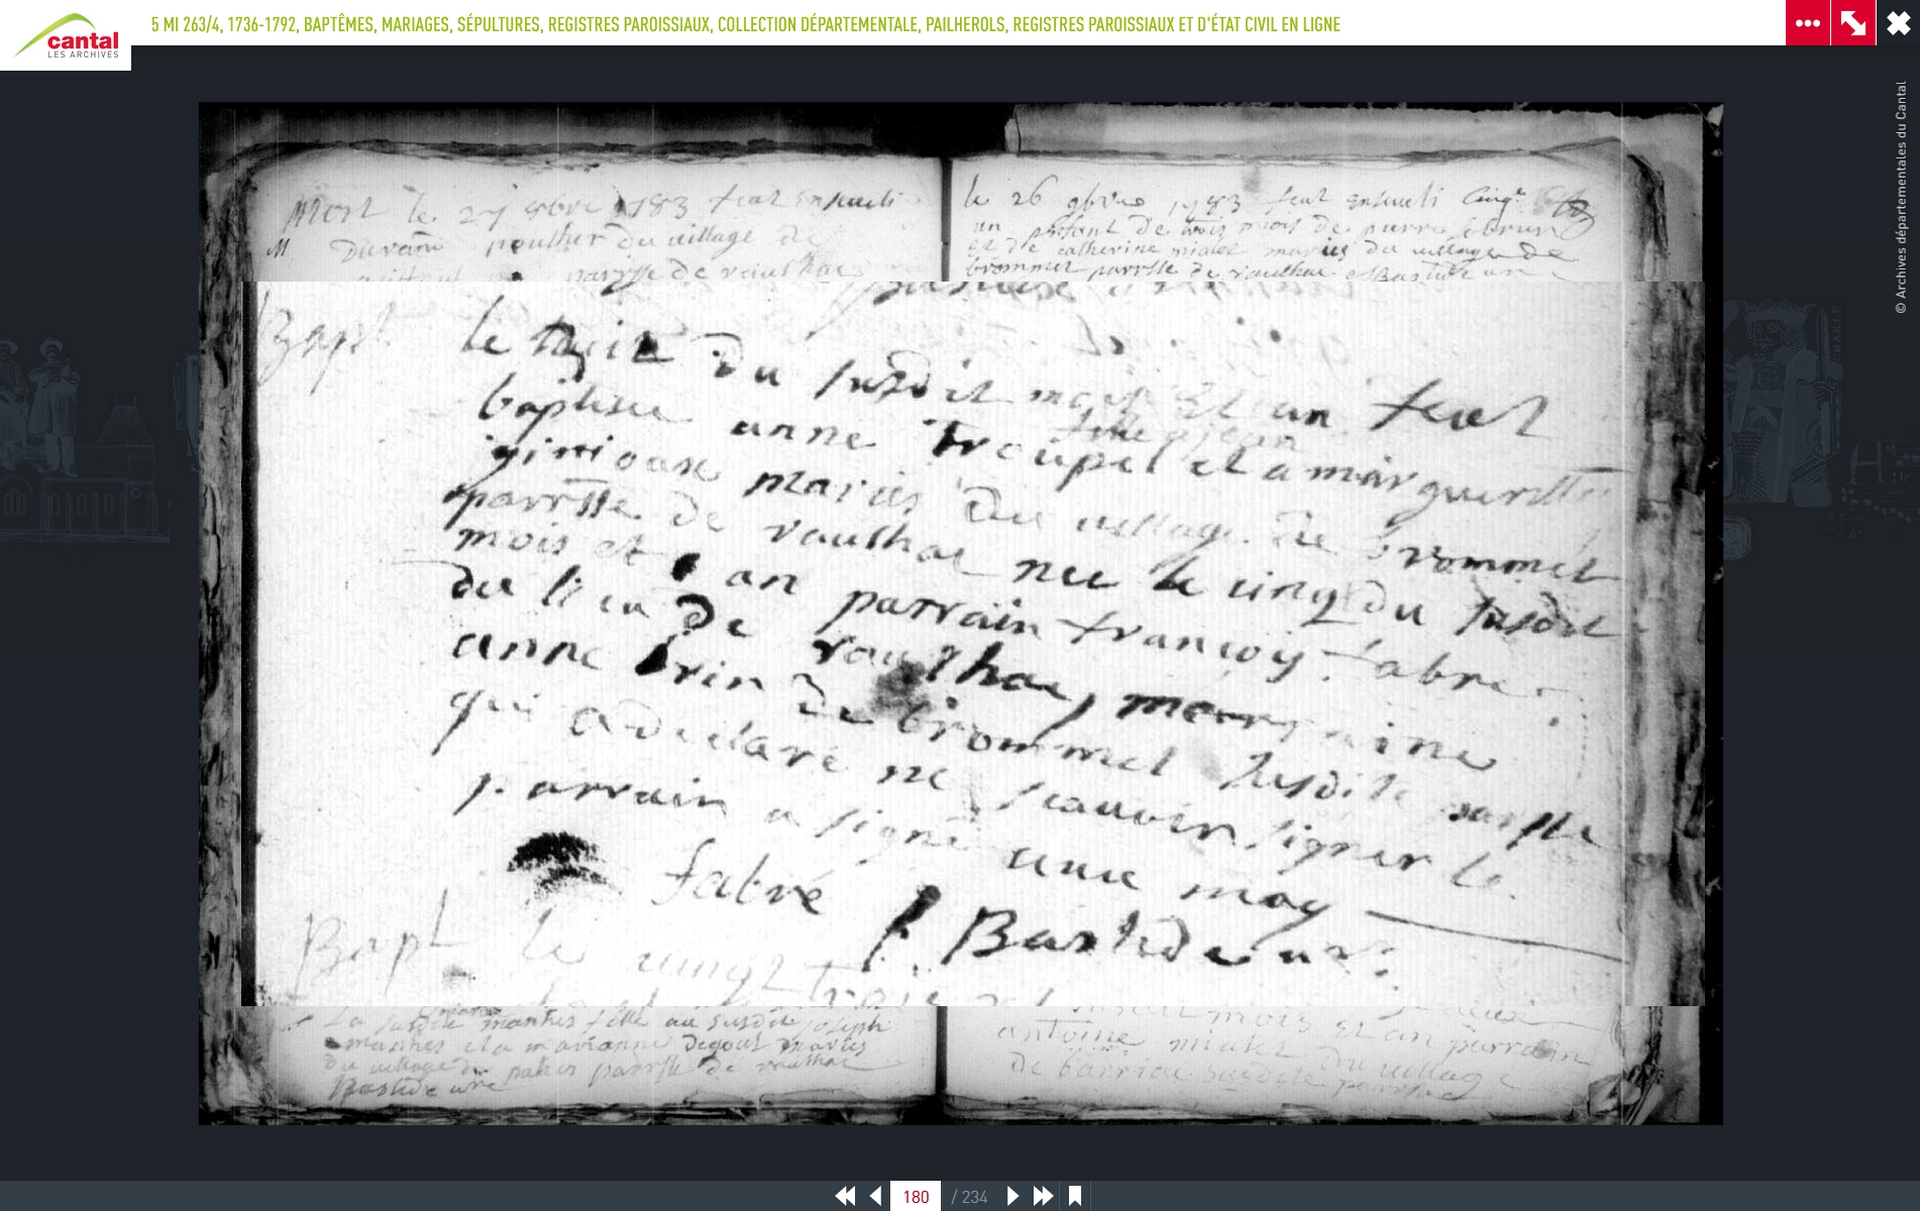 cantal
LES ARCHIVES
5 MI 263/4, 1736-1792, BAPTÊMES, MARIAGES, SÉPULTURES, REGISTRES PAROISSIAUX, COLLECTION DÉPARTEMENTALE, PAILHEROLS, REGISTRES PAROISSIAUX ET D'ÉTAT CIVIL EN LIGNE
© Archives départementales du Cantal
Mort le 27 9bre 1783 feut enseveli
M
Durand du village de
parrsse de raulhac
le 26 9bre 1783 feut enseveli
un enfant de trois mois de pierre brun
et de catherine mialet mariés du village de
brommet parrsse de raulhac Bastide
Bapt le treize du susdit mois et an feut
baptisee anne Troupel fille a jean et a margueritte
ginioux mariés du village de brommet
parrsse de raulhac nee le cinq du susdit
mois et an parrain françois fabre
du lieu de raulhac, marraine
anne brin de brommet susdite parrsse
qui a declaré ne scauoir signer le
parrain a signé auec moy
fabre Bastide
Bapt le vingt trois
La susdite manhes fille au susdit joseph
manhes et a marianne degoul mariés
du village de parrsse de raulhac
Bastide
susdit mois et an parrain
antoine mialet du village
de barriac susdite parrsse
180 / 234